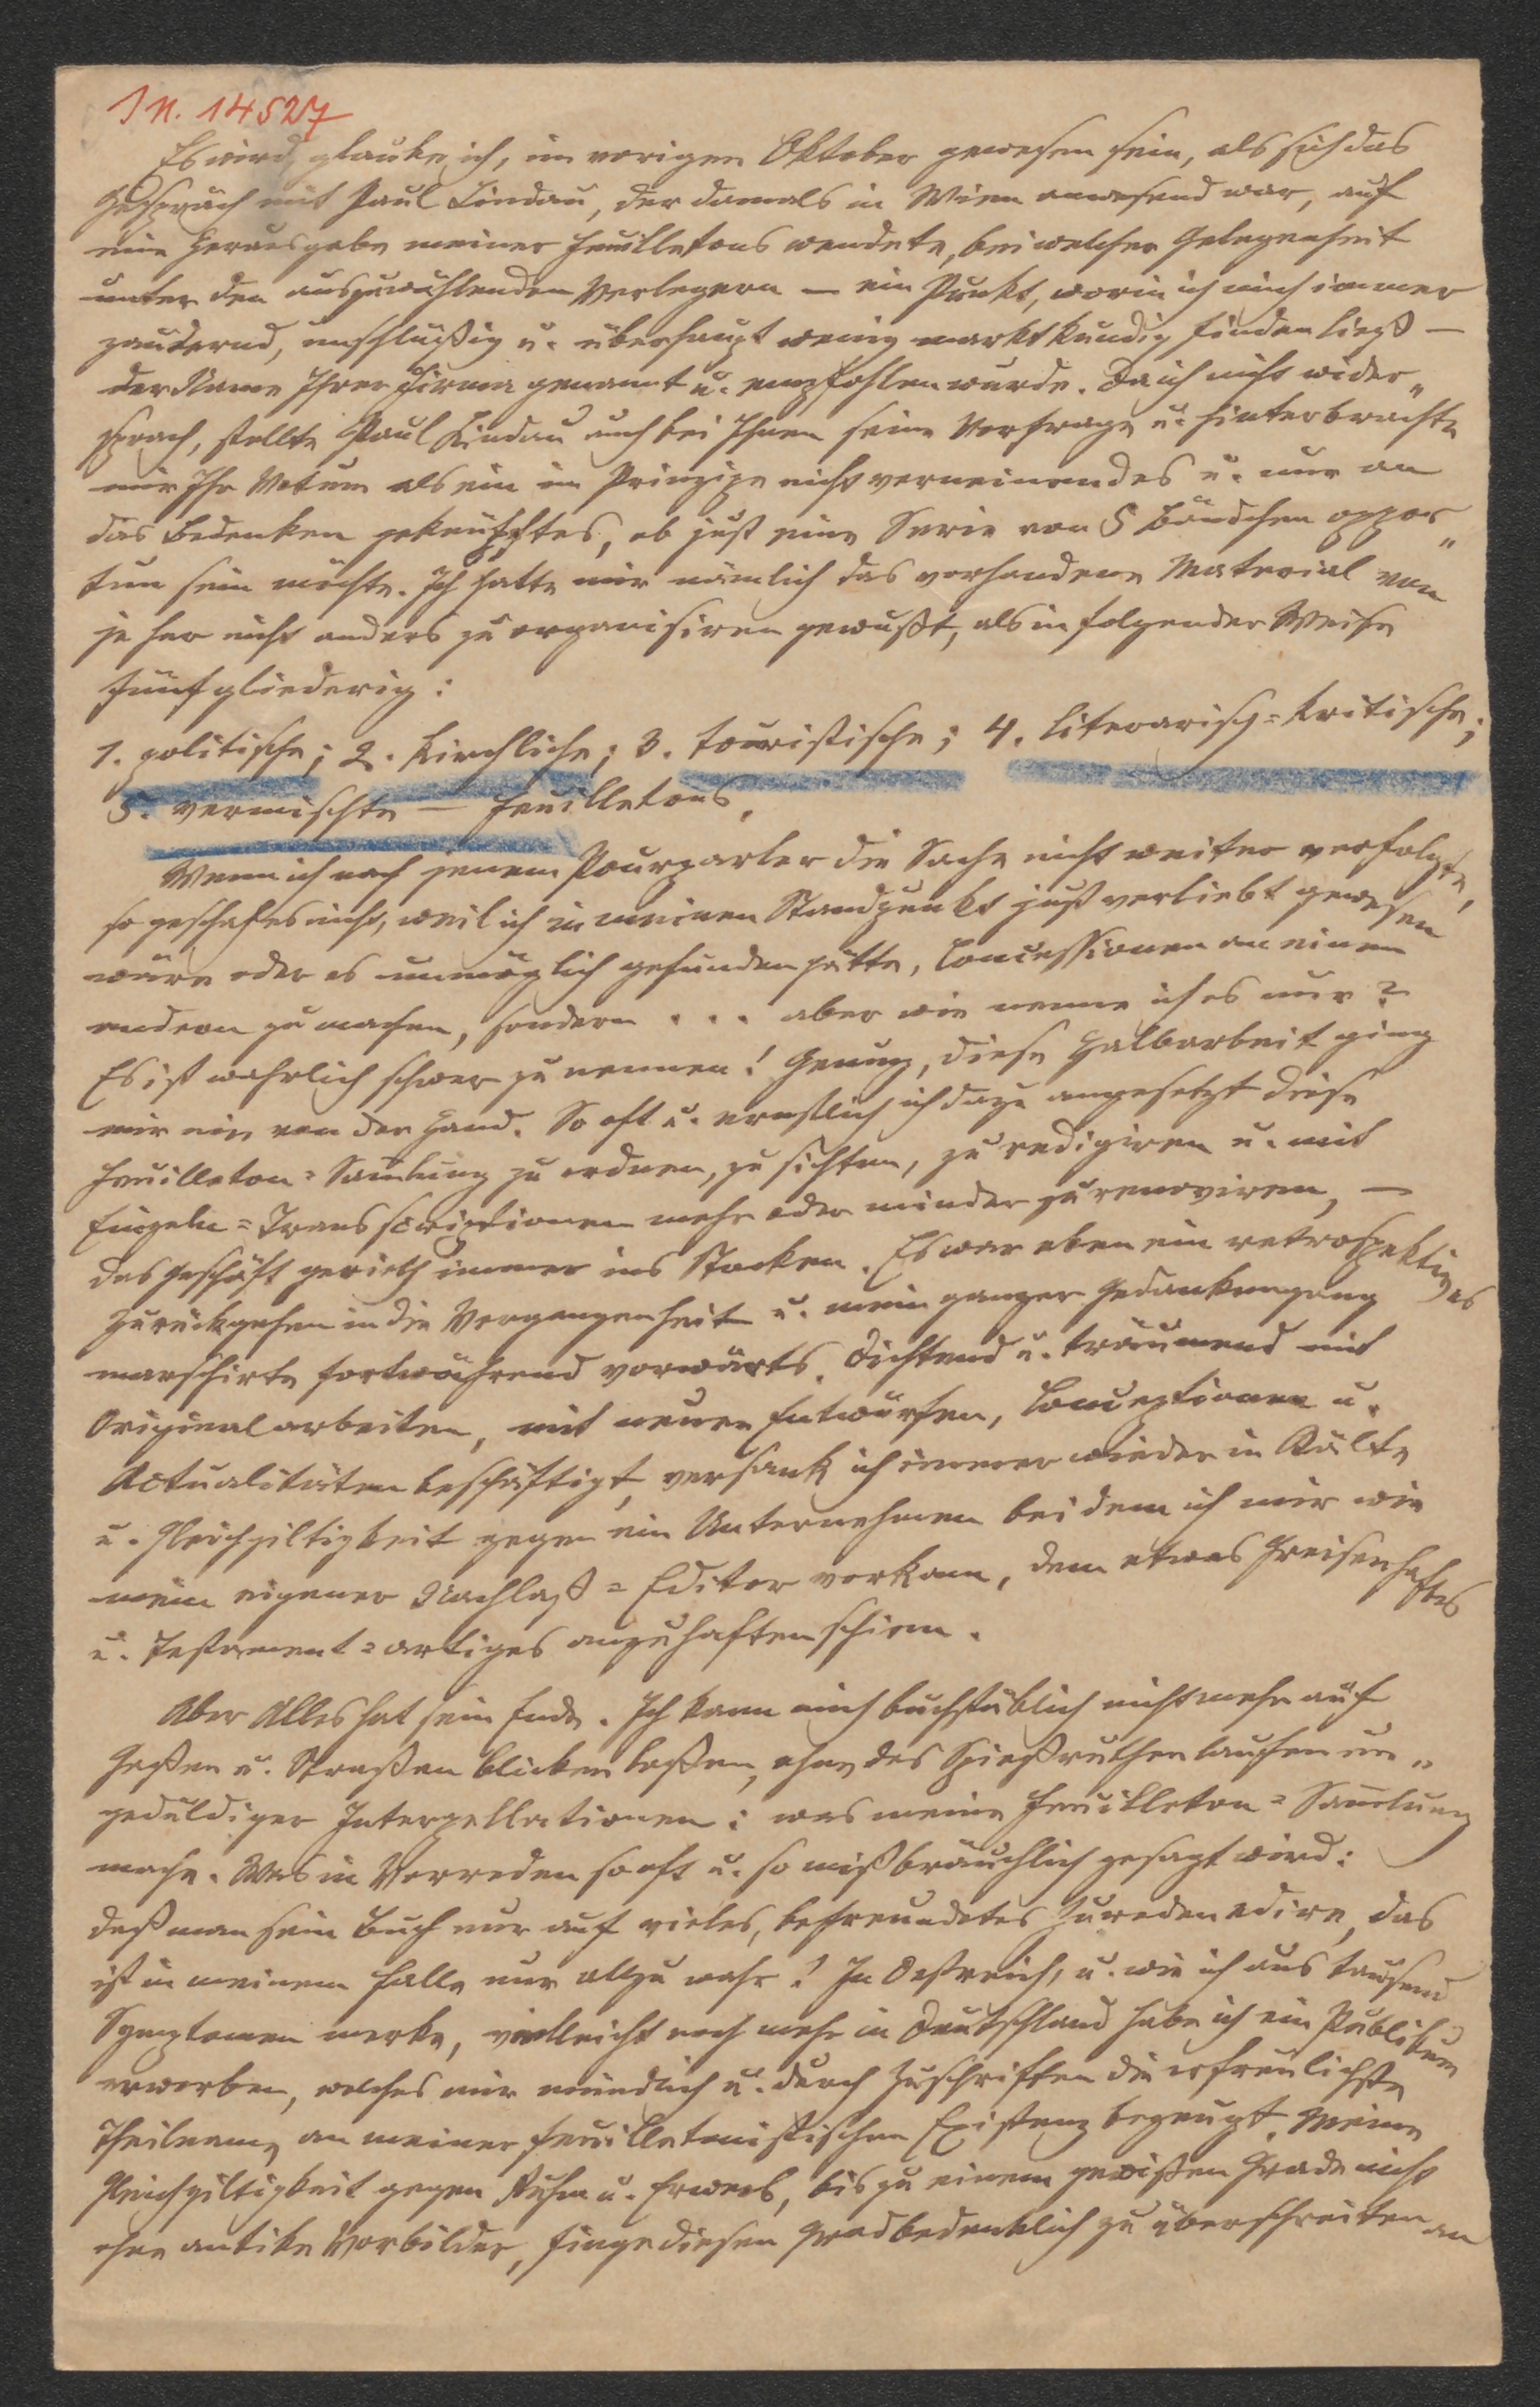 IN. 14527
Es wird, glaube ich, im vorigen Oktober gewesen sein, als sich das
Gespräch mit Paul Lindau, der damals in Wien anwesend war, auf
eine Herausgabe meiner Feuilletons wendete, bei welcher Gelegenheit
unter den auszuwählenden Verlegern — ein Punkt, worin ich mich immer
zaudernd, unschlüßig u. überhaupt wenig marktkundig finden ließ —
der Name Ihrer Firma genannt u. empfohlen wurde. Da ich nicht wider„
sprach, stellte Paul Lindau auch bei Ihnen seine Vorfrage u. hinterbrachte
mir Ihr Votum als ein im Prinzipe nicht verneinendes u. nur an
das Bedenken geknüpftes, ob just eine Serie von 5 Bändchen oppor„
tun sein möchte. Ich hatte mir nämlich das vorhandene Material von
je her nicht anders zu organisiren gewußt, als in folgender Weise
fünfgliederig:
1. politische; 2. kirchliche; 3. touristische; 4. literarisch=kritische;
5. vermischte — Feuilletons.
Wenn ich nach jenem Pourparler die Sache nicht weiter verfolgte,
so geschah es nicht, weil ich in meinen Standpunkt just verliebt gewesen
wäre oder es unmöglich gefunden hätte, Concessionen an einen
andern zu machen, sondern . . . aber wie nenne ich es nur?
Es ist wahrlich schwer zu nennen! Genug, diese Halbarbeit ging
mir nie von der Hand. So oft u. ernstlich ich dazu angesetzt diese
Feuilleton=Samlung zu ordnen, zu sichten, zu redigiren u. mit
Einzeln=Transscriptionen mehr oder minder zu renoviren, —
das Geschäft gerieth immer ins Stocken. Es war eben ein retrospektives
Zurückgehen in die Vergangenheit u. mein ganzer Gedankengang
marschirte fortwährend vorwärts. Dichtend u. träumend mit
Originalarbeiten, mit neuen Entwürfen, Conceptionen u.
Actualitäten beschäftigt, versank ich immer wieder in Kälte
u. Gleichgiltigkeit gegen ein Unternehmen bei dem ich mir wie
mein eigener Nachlaß=Editor vorkam, dem etwas Greisenhaftes
u. Testament=artiges anzuhaften schien.
Aber Alles hat sein Ende. Ich kann mich buchstäblich nicht mehr auf
Gaßen u. Straßen blicken laßen, ohne das Spießruthenlaufen un„
geduldiger Interpellationen: was meine Feuilleton=Samlung
mache. Was in Vorreden so oft u. so mißbräuchlich gesagt wird:
daß man sein Buch nur auf vieles, befreundetes Zureden edire, das
ist in meinem Falle nur allzu wahr! In Oestreich, u. wie ich aus tausend
Symptomen merke, vielleicht noch mehr in Deutschland habe ich ein Publikum
erworben, welches mir mündlich u. durch Zuschriften die erfreulichste
Theilname an meiner feuilletonistischen Existenz bezeugt. Meine
Gleichgiltigkeit gegen Ruhm u. Erwerb, bis zu einem gewißen Grade nicht
ohne antike Vorbilder, finge diesen Grad bedenklich zu überschreiten an